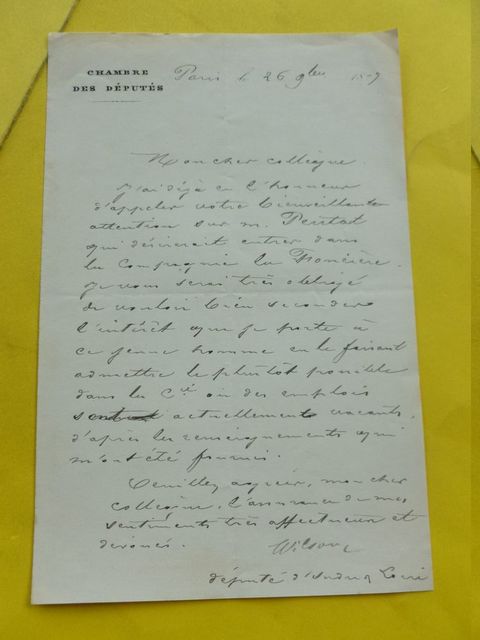 CHAMBRE
DES DÉPUTÉS
Paris le 26 9bre
Mon cher collègue
J'ai déjà eu l'honneur
d'appeler votre bienveillante
attention sur m.
qui désirerait entrer dans
la Compagnie la Foncière.
Je vous serai très obligé
de vouloir bien seconder
l'intérêt que je porte à
ce jeune homme en le faisant
admettre le plutôt possible
dans la Cie où des emplois
sont actuellement vacants,
d'après les renseignements qui
m'ont été fournis.
Veuillez agréer, mon cher
collègue, l'assurance de mes
sentiments très affectueux et
dévoués.
Wilson
député d'Indre & Loire